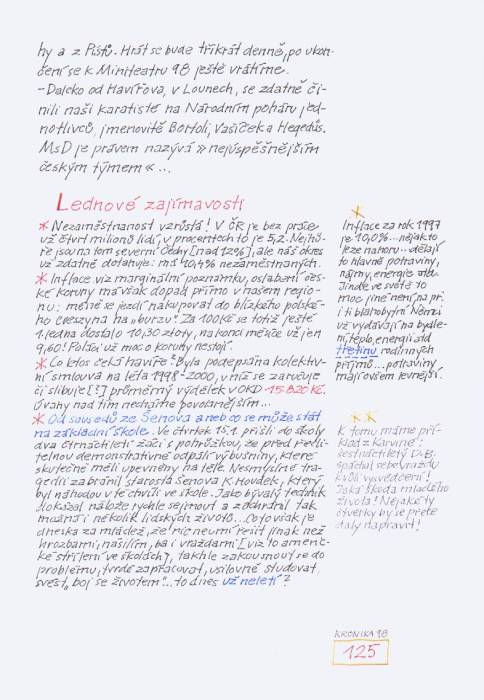 hy a z Pístů. Hrát se bude třikrát denně, po ukon-
čení se k Miniteatru 98 ještě vrátíme.
- Daleko od Havířova, v Lounech, se zdatně či-
nili naši karatisté na Národním poháru jed-
notlivců, jmenovitě Bortoli, Vašíček a Hegedüs.
MsD je právem nazývá » nejúspěšnějším
českým týmem « ...
Lednové zajímavosti
* Nezaměstnanost vzrostla! V ČR je bez práce
už čtvrt milionů lidí, v procentech to je 5,2. Nejhů-
ře jsou na tom severní Čechy [nad 12%], ale náš okres
už zdatně dotahuje: má 10,4% nezaměstnaných.
* Inflace viz marginální poznámku, oslabení čes-
ké koruny má však dopad přímo v našem regio-
nu: méně se jezdí nakupovat do blízkého polské-
ho Cieszyna na „burzu". Za 100 Kč se totiž ještě
1. ledna dostalo 10,30 zloty, na konci měsíce už jen
9,60! Poláci už moc o koruny nestojí.
* Co letos čeká havíře? Byla podepsána kolektiv-
ní smlouva na léta 1998-2000, v níž se zaručuje
či slibuje [?] průměrný výdělek v OKD 15.820 Kč.
Úvahy nad tím nechejme povolanějším...
* Od sousedů ze Šenova aneb co se může stát
na základní škole. Ve čtvrtek 15.1. přišli do školy
dva čtrnáctiletí žáci s pohrůžkou, že před ředi-
telnou demonstrativně odpálí výbušniny, které
skutečně měli upevněny na těle. Nesmyslné tra-
gedii zabránil starosta Šenova K. Houdek, který
byl náhodou v té chvíli ve škole. Jako bývalý technik
dokázal nálože rychle sejmout a zachránil tak
možná i několik lidských životů... Co to však je
dneska za mládež, že nic neumí řešit jinak než
hrozbami, násilím, ba i vraždami [viz to americ-
ké střílení ve školách], takhle zakousnout se do
problému, tvrdě zapracovat, usilovně studovat,
svést „boj se životem"... to dnes už neletí?
*
Inflace za rok 1997
je 10,0% ... nějak to
leze nahoru... dělají
to hlavně potraviny,
nájmy, energie atd.
Jindě ve světě to
moc jiné není, na př.
i ti blahobytní Němci
už vydávají na bydle-
ní, teplo, energii atd
třetinu rodinných
příjmů... potraviny
mají ovšem levnější.
* *
K tomu máme pří-
klad z Karviné:
šestnáctiletý D.B.
spáchal sebevraždu
kvůli vysvědčení!
Jaká škoda mladého
života! Nějaké ty
čtverky by se přece
daly napravit!
KRONIKA 98
125